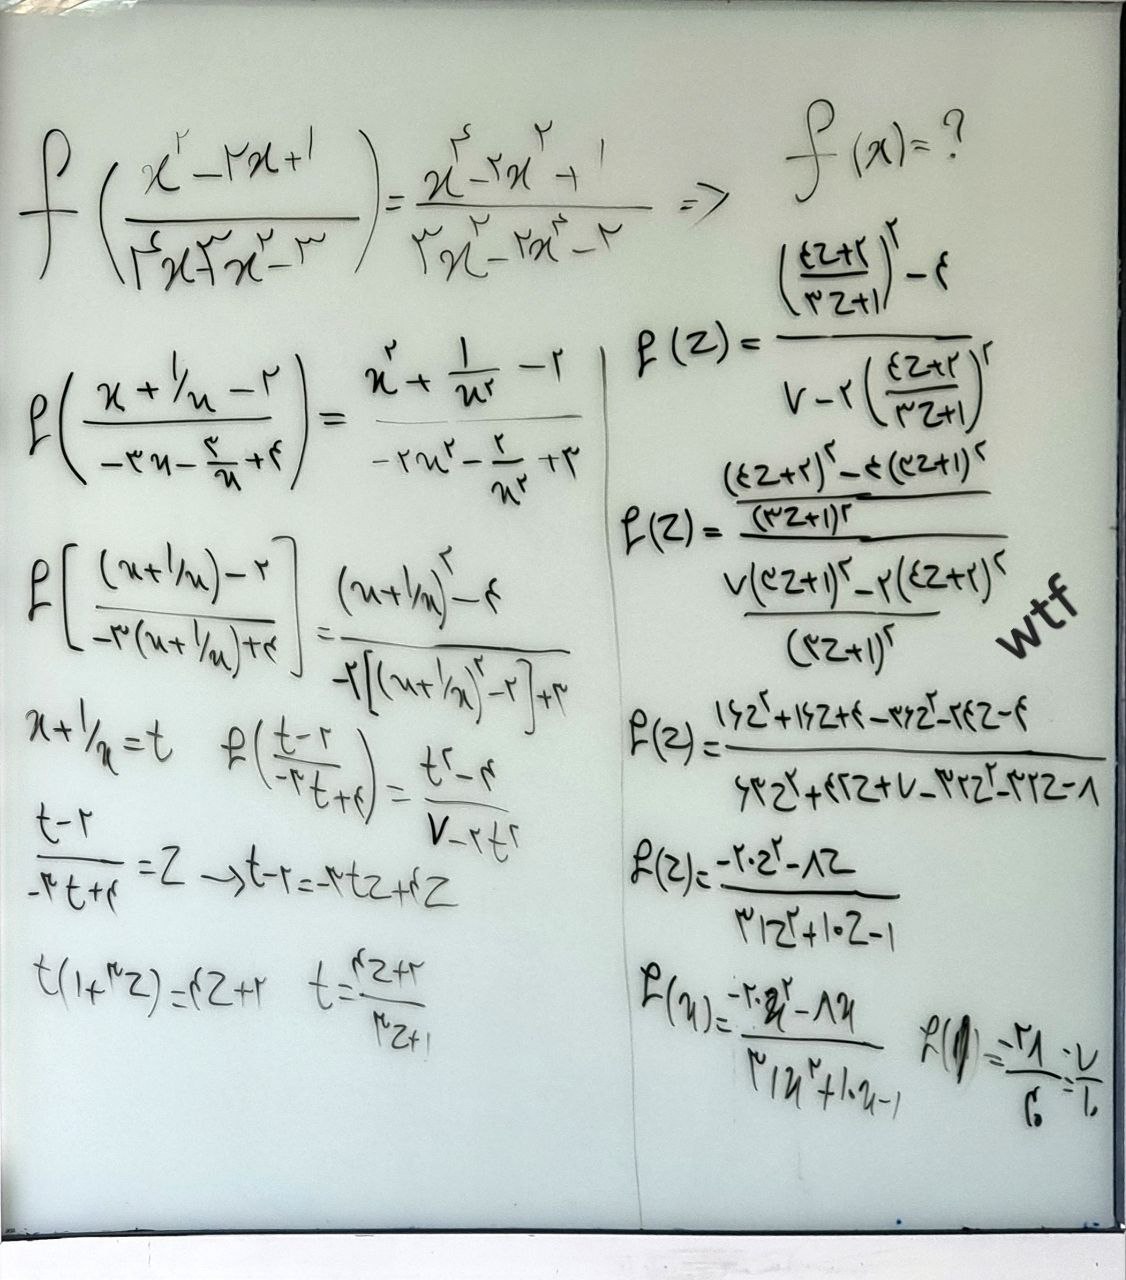 f((x^۲ - ۲x + ۱)/(۴x - ۳x^۲ - ۳)) = (x^۴ - ۲x^۲ + ۱)/(۳x^۲ - ۲x^۴ - ۲) => f(x) = ?
f((x + ۱/x - ۲)/(-۳x - ۳/x + ۴)) = (x^۲ + ۱/x^۲ - ۲)/(-۲x^۲ - ۲/x^۲ + ۳)
f[((x + ۱/x) - ۲)/(-۳(x + ۱/x) + ۴)] = ((x + ۱/x)^۲ - ۴)/(-۲[(x + ۱/x)^۲ - ۲] + ۳)
x + ۱/x = t f((t - ۲)/(-۳t + ۴)) = (t^۲ - ۴)/(۷ - ۲t^۲)
(t - ۲)/(-۳t + ۴) = z → t - ۲ = -۳tz + ۴z
t(۱ + ۳z) = ۴z + ۲ t = (۴z + ۲)/(۳z + ۱)
f(z) = (((۴z + ۲)/(۳z + ۱))^۲ - ۴)/(۷ - ۲((۴z + ۲)/(۳z + ۱))^۲)
f(z) = (((۴z + ۲)^۲ - ۴(۳z + ۱)^۲)/(۳z + ۱)^۲)/((۷(۳z + ۱)^۲ - ۲(۴z + ۲)^۲)/(۳z + ۱)^۲)
wtf
f(z) = (۱۶z^۲ + ۱۶z + ۴ - ۳۶z^۲ - ۲۴z - ۴)/(۶۳z^۲ + ۴۲z + ۷ - ۳۲z^۲ - ۳۲z - ۸)
f(z) = (-۲۰z^۲ - ۸z)/(۳۱z^۲ + ۱۰z - ۱)
f(x) = (-۲۰x^۲ - ۸x)/(۳۱x^۲ + ۱۰x - ۱) f(۱) = -۲۸/۴۰ = -۷/۱۰